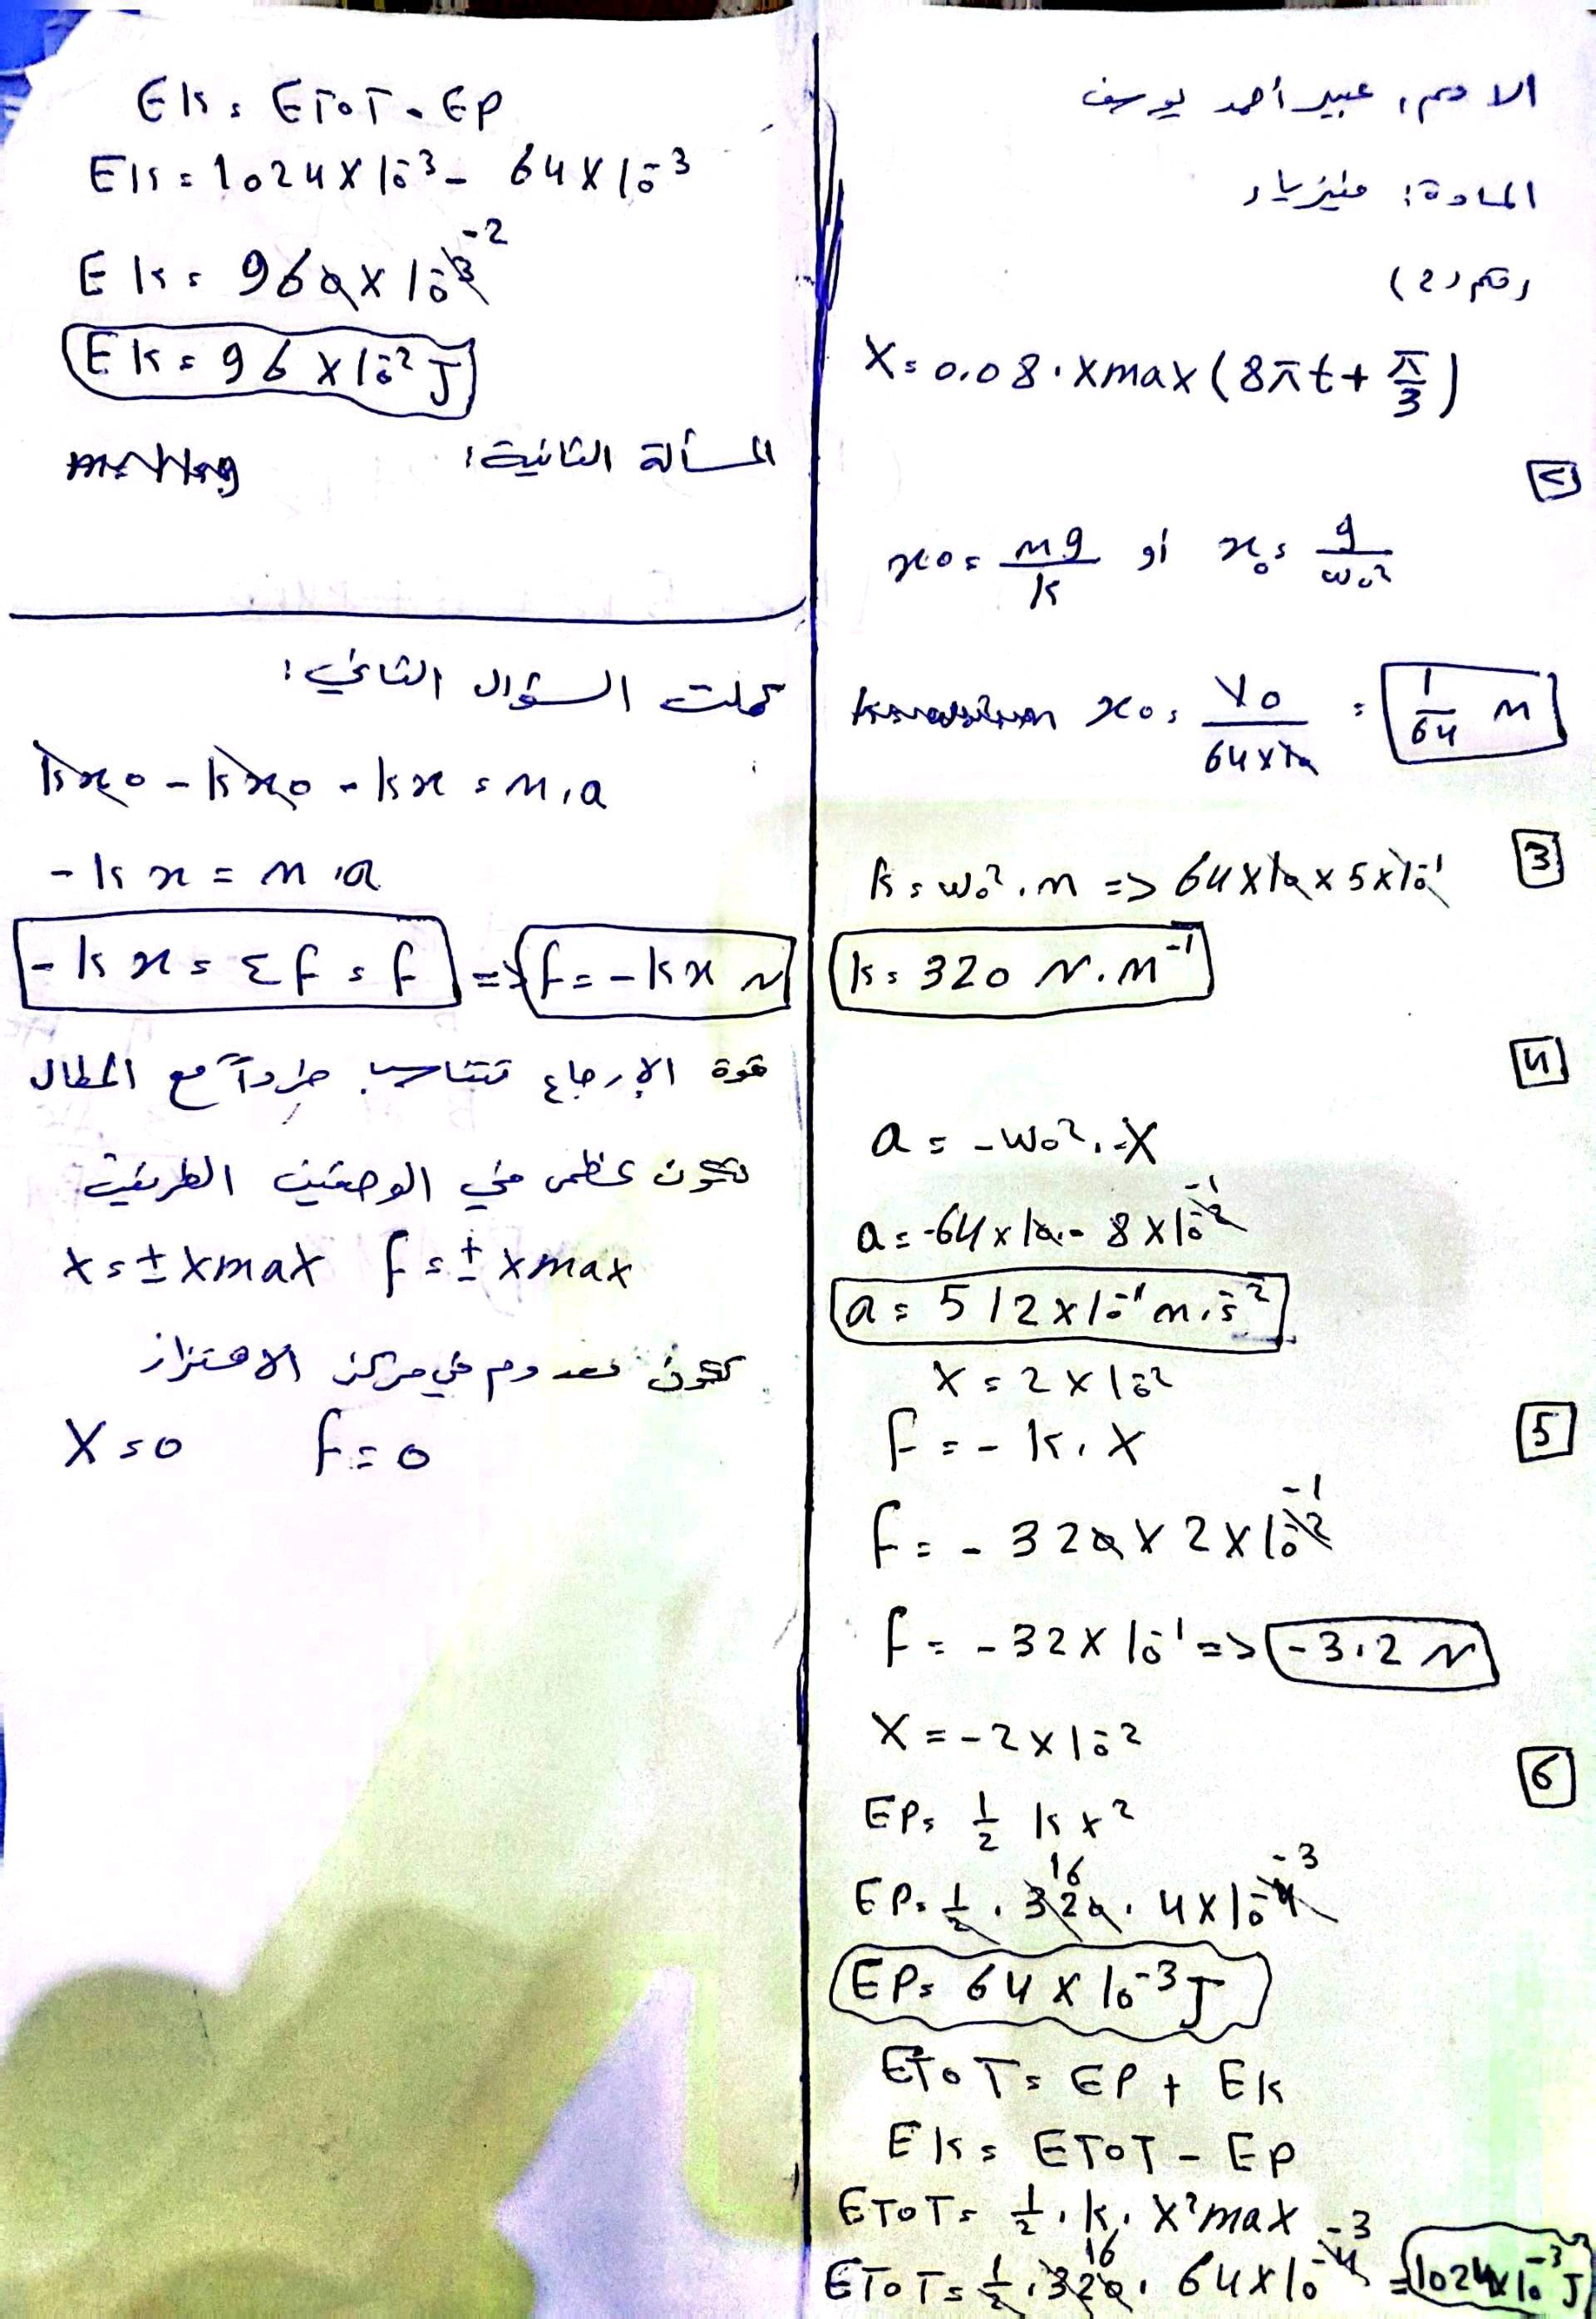 الاسم: عبير أحمد يوسف
المادة: فيزياء
رقم (2)
X = 0.08 . Xmax (8πt + π/3)
2
x0 = mg/k أو x0 = g/ω0²
x0 = 10/64×10 = 1/64 m
3
k = ω0² . m => 64 × 10 × 5 × 10^-1
k = 320 N.m^-1
4
a = -ω0² . -X
a = -64 × 10 . - 8 × 10^-2 -1
a = 512 × 10^-1 m.s^-2
X = 2 × 10^-2
5
f = - k . X
f = - 320 × 2 × 10^-2 -1
f = - 32 × 10^-1 => -3.2 N
X = -2 × 10^-2
6
EP = 1/2 k x²
EP = 1/2 . 320 16 . 4 × 10^-4 -3
EP = 64 × 10^-3 J
ETOT = EP + EK
EK = ETOT - EP
ETOT = 1/2 . k . X²max
ETOT = 1/2 . 320 16 . 64 × 10^-4 -3 = 1024 × 10^-3 J
EK = ETOT - EP
EK = 1024 × 10^-3 - 64 × 10^-3
EK = 960 × 10^-3 -2
EK = 96 × 10^-2 J
المسألة الثانية:
تكملت السؤال الثاني:
kx0 - kx0 - kx = m.a
- kx = m.a
- kx = Σf = f => f = - kx N
قوة الإرجاع تتناسب طرداً مع المطال
تكون عظمى في الوضعين الطرفيين
X = ± Xmax f = ± Xmax
تكون معدوم في مركز الاهتزاز
X = 0 f = 0